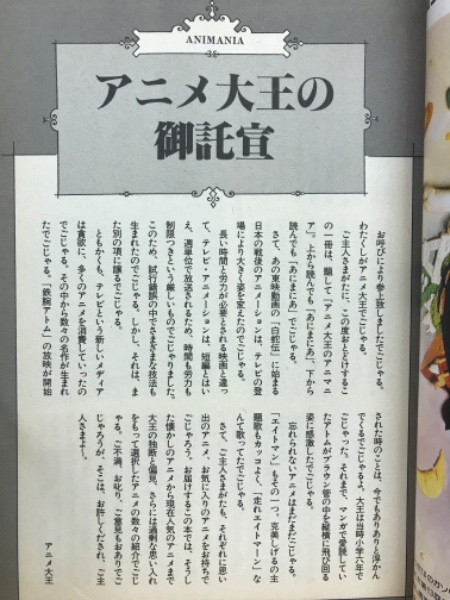 ANIMANIA
アニメ大王の
御託宣
お呼びにより参上致しましたでごじゃる。
わたくしがアニメ大王でごじゃる。
ご主人さまがたに、この度おとどけするこ
の一冊は、題して『アニメ大王のアニマニ
ア』。上から読んでも「あにまにあ」、下から
読んでも「あにまにあ」でごじゃる。
さて、あの東映動画の「白蛇伝」に始まる
日本の戦後のアニメーションは、テレビの登
場により大きく姿を変えたのでごじゃる。
長い時間と労力が必要とされる映画と違っ
て、テレビ・アニメーションは、短編とはい
え、週単位で放送されるため、時間も労力も
制限つきという厳しいものでごじゃりました。
このため、試行錯誤の中でさまざまな技法も
生まれたのでごじゃる。しかし、それは、ま
た別の項に譲るでごじゃる。
ともかくも、テレビという新しいメディア
は貪欲に、多くのアニメを消費していったの
でごじゃる。その中から数々の名作が生まれ
たでごじゃる。「鉄腕アトム」の放映が開始
された時のことは、今でもありありと浮かん
でくるでごじゃるよ。大王は当時小学六年で
ごじゃった。それまで、マンガで愛読してい
たアトムがブラウン管の中を縦横に飛び回る
姿に感激したでごじゃる。
忘れられないアニメはまだまだごじゃる。
「エイトマン」もその一つ。克美しげるの主
題歌もカッコよく、「走れエイトマーン」な
んて歌ってたでごじゃる。
さて、ご主人さまがたも、それぞれに思い
出のアニメ、お気に入りのアニメをお持ちで
ごじゃろう。お届けするこの本では、そうし
た懐かしのアニメから現在人気のアニメまで
大王の独断と偏見、さらには過剰な思い入れ
をもって選択したアニメの数々の紹介でごじ
ゃる。ご不満、お叱り、ご意見もおありでご
じゃろうが、そこは、お許しくだされ、ご主
人さまよー。
アニメ大王